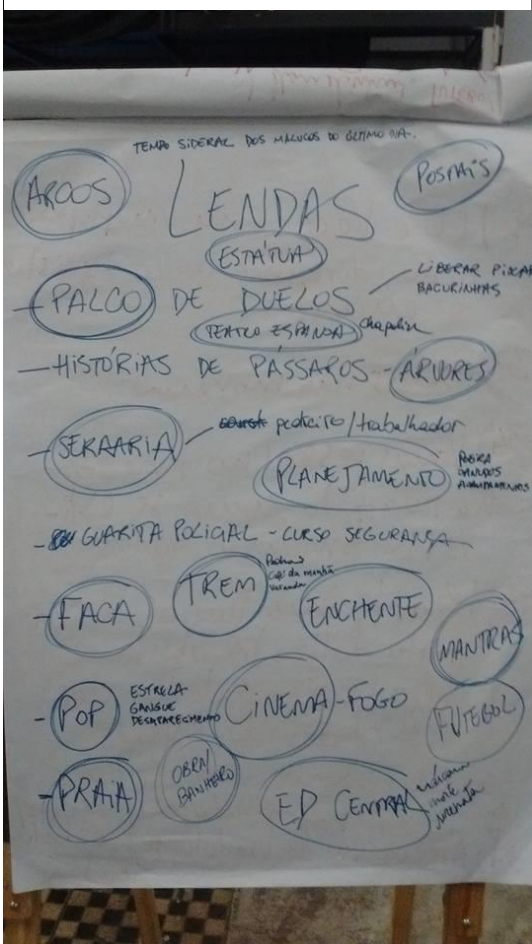 TEMPO SIDERAL DOS MALUCOS DO ÚLTIMO DIA.
ARCOS
LENDAS
POSTAIS
ESTÁTUA
- PALCO DE DUELOS
LIBERAR PIXAR
BAGURINHAS
TEATRO ESPANCA
- HISTÓRIAS DE PÁSSAROS - ÁRVORES
- SERRARIA
pedreiro/trabalhador
PLANEJAMENTO
- GUARITA POLICIAL - CURSO SEGURANÇA
TREM
café da manhã
- FACA
ENCHENTE
MANTRAS
- POP
ESTRELA
GANGUE
DESAPARECIMENTO
CINEMA - FOGO
FUTEBOL
- PRAIA
OBRA/
BANHEIRO
ED CENTRAL
morte